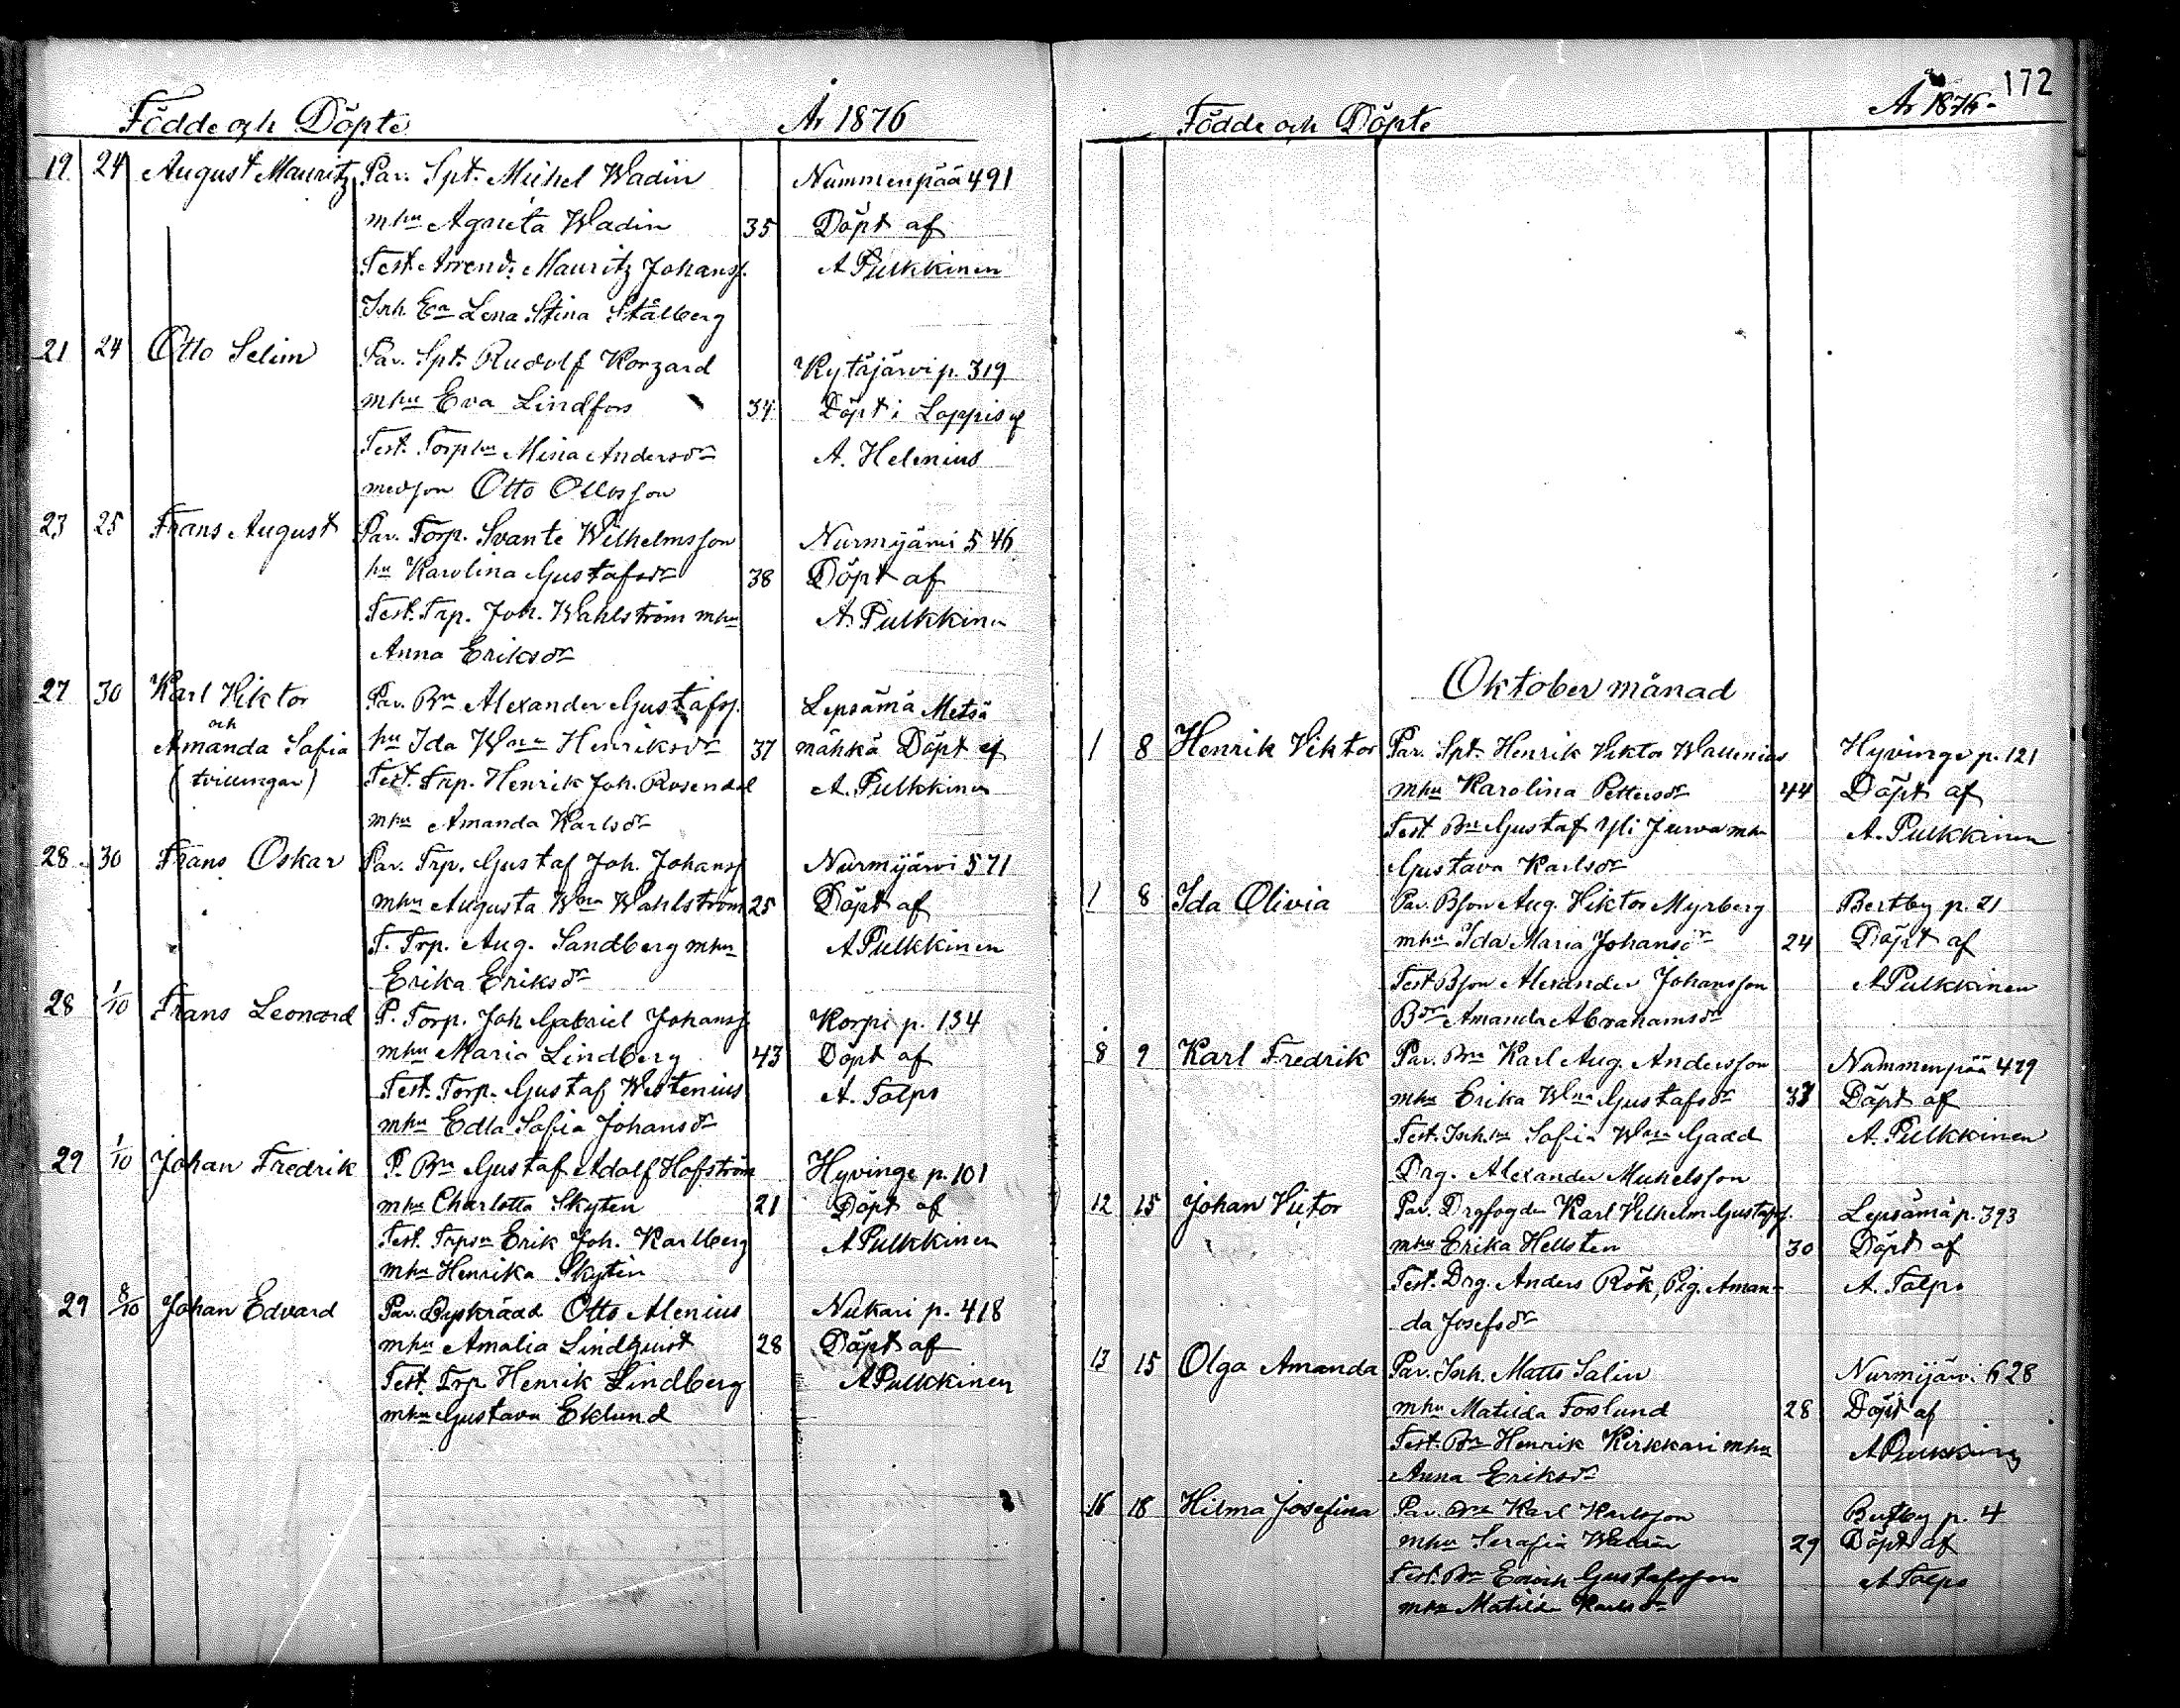 Födde och Döpte År 1876
19 24 August Mauritz Par. Spt. Michel Wadin Nummenpää 491
mhu Agneta Wadin 35 Döpt af
Test. Arrend. Mauritz Johanss. A Pulkkinen
Inh. Ea Lena Stina Stålberg
21 24 Otto Selim Par. Spt. Rudolf Korzard Kytäjärvi p. 319
mhu Eva Lindfors 34 Döpt i Loppis af
Test. Torphu Mina Andersdr A. Helenius
medson Otto Ollosson
23 25 Frans August Par. Torp. Svante Wilhelmsson Nurmijärvi 546
hu Karolina Gustafsdr 38 Döpt af
Test. Trp. Joh. Wahlström mhu A. Pulkkinen
Anna Eriksdr
27 30 Karl Viktor Par. Bn Alexander Gustafss. Lepsämä Metsä
och
Amanda Sofia hu Ida Wna Henriksdr 37 nähkä Döpt af
(tvillingar) Test. Trp. Henrik Joh. Rosendal A. Pulkkinen
mhu Amanda Karlsdr
28 30 Frans Oskar Par. Trp. Gustaf Joh. Johanss Nurmijärvi 571
mhu Augusta Wna Wahlström 25 Döpt af
T. Trp. Aug. Sandberg mhu A Pulkkinen
Erika Eriksdr
28 1/10 Frans Leonard P. Torp. Joh Gabriel Johanss. Korpi p. 134
mhu Maria Lindberg 43 Döpt af
Test. Torp. Gustaf Westenius A. Talpo
mhu Edla Sofia Johansdr
29 1/10 Johan Fredrik P. Bn Gustaf Adolf Hofström Hyvinge p. 101
mhu Charlotta Skytén 21 Döpt af
Test. Trpsn Erik Joh. Karlberg A Pulkkinen
mhu Henrika Skytén
29 8/10 Johan Edvard Par. Otto Alenius Nukari p. 418
mhu Amalia Lindquist 28 Döpt af
Test. Trp Henrik Lindberg A Pulkkinen
mhu Gustava Eklund
172
Födde och Döpte År 1876
Oktober månad
1 8 Henrik Viktor Par. Spt. Henrik Viktor Wallenius Hyvinge p. 121
mhu Karolina Pettersdr 44 Döpt af
Test Bn Gustaf Yli Jurva mhu A. Pulkkinen
Gustava Karlsdr
1 8 Ida Olivia Par. Bson Aug. Viktor Myrberg Bertby p. 21
mhu Ida Maria Johansdr 24 Döpt af
Test Bson Alexander Johansson A Pulkkinen
Bdr Amanda Abrahamsdr
8 9 Karl Fredrik Par. Bn Karl Aug. Andersson Nummenpää 479
mhu Erika Wna Gustafsdr Döpt af
Test. Inh. Sofia Wna Gadd A. Pulkkinen
Drg. Alexander Michelsson
12 15 Johan Victor Par. Drgfogden Karl Vilhelm Gustafss. Lepsämä p. 393
mhu Erika Hellsten 30 Döpt af
Test. Drg. Anders Rök, Pig. Aman- A. Talpo
da Josefsdr
13 15 Olga Amanda Par. Inh. Matts Salin Nurmijärvi 628
mhu Matilda Foslund 28 Döpt af
Test. Bn Henrik Kirkkari mhu A Pulkkinen
Anna Eriksdr
16 18 Hilma Josefina Par. Bn Karl Karlsson p. 4
mhu Serafia 29 Döpt af
Test. Bn Enoch Gustafsson A Talpo
mhu Matilda Karlsdr